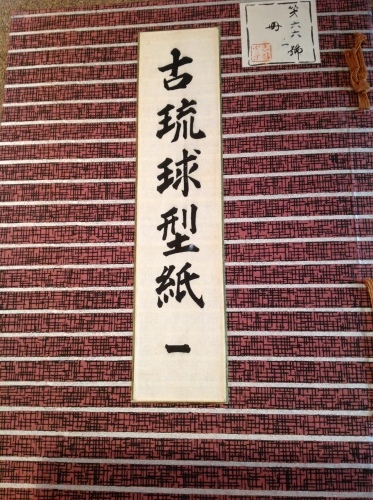 古琉球型紙 一
第六六號
冊